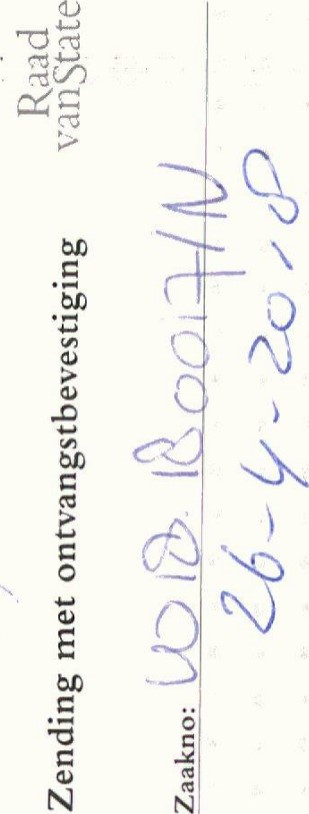 Raad
vanState
Zending met ontvangstbevestiging
Zaakno: W018.180017/N
26-4-2018